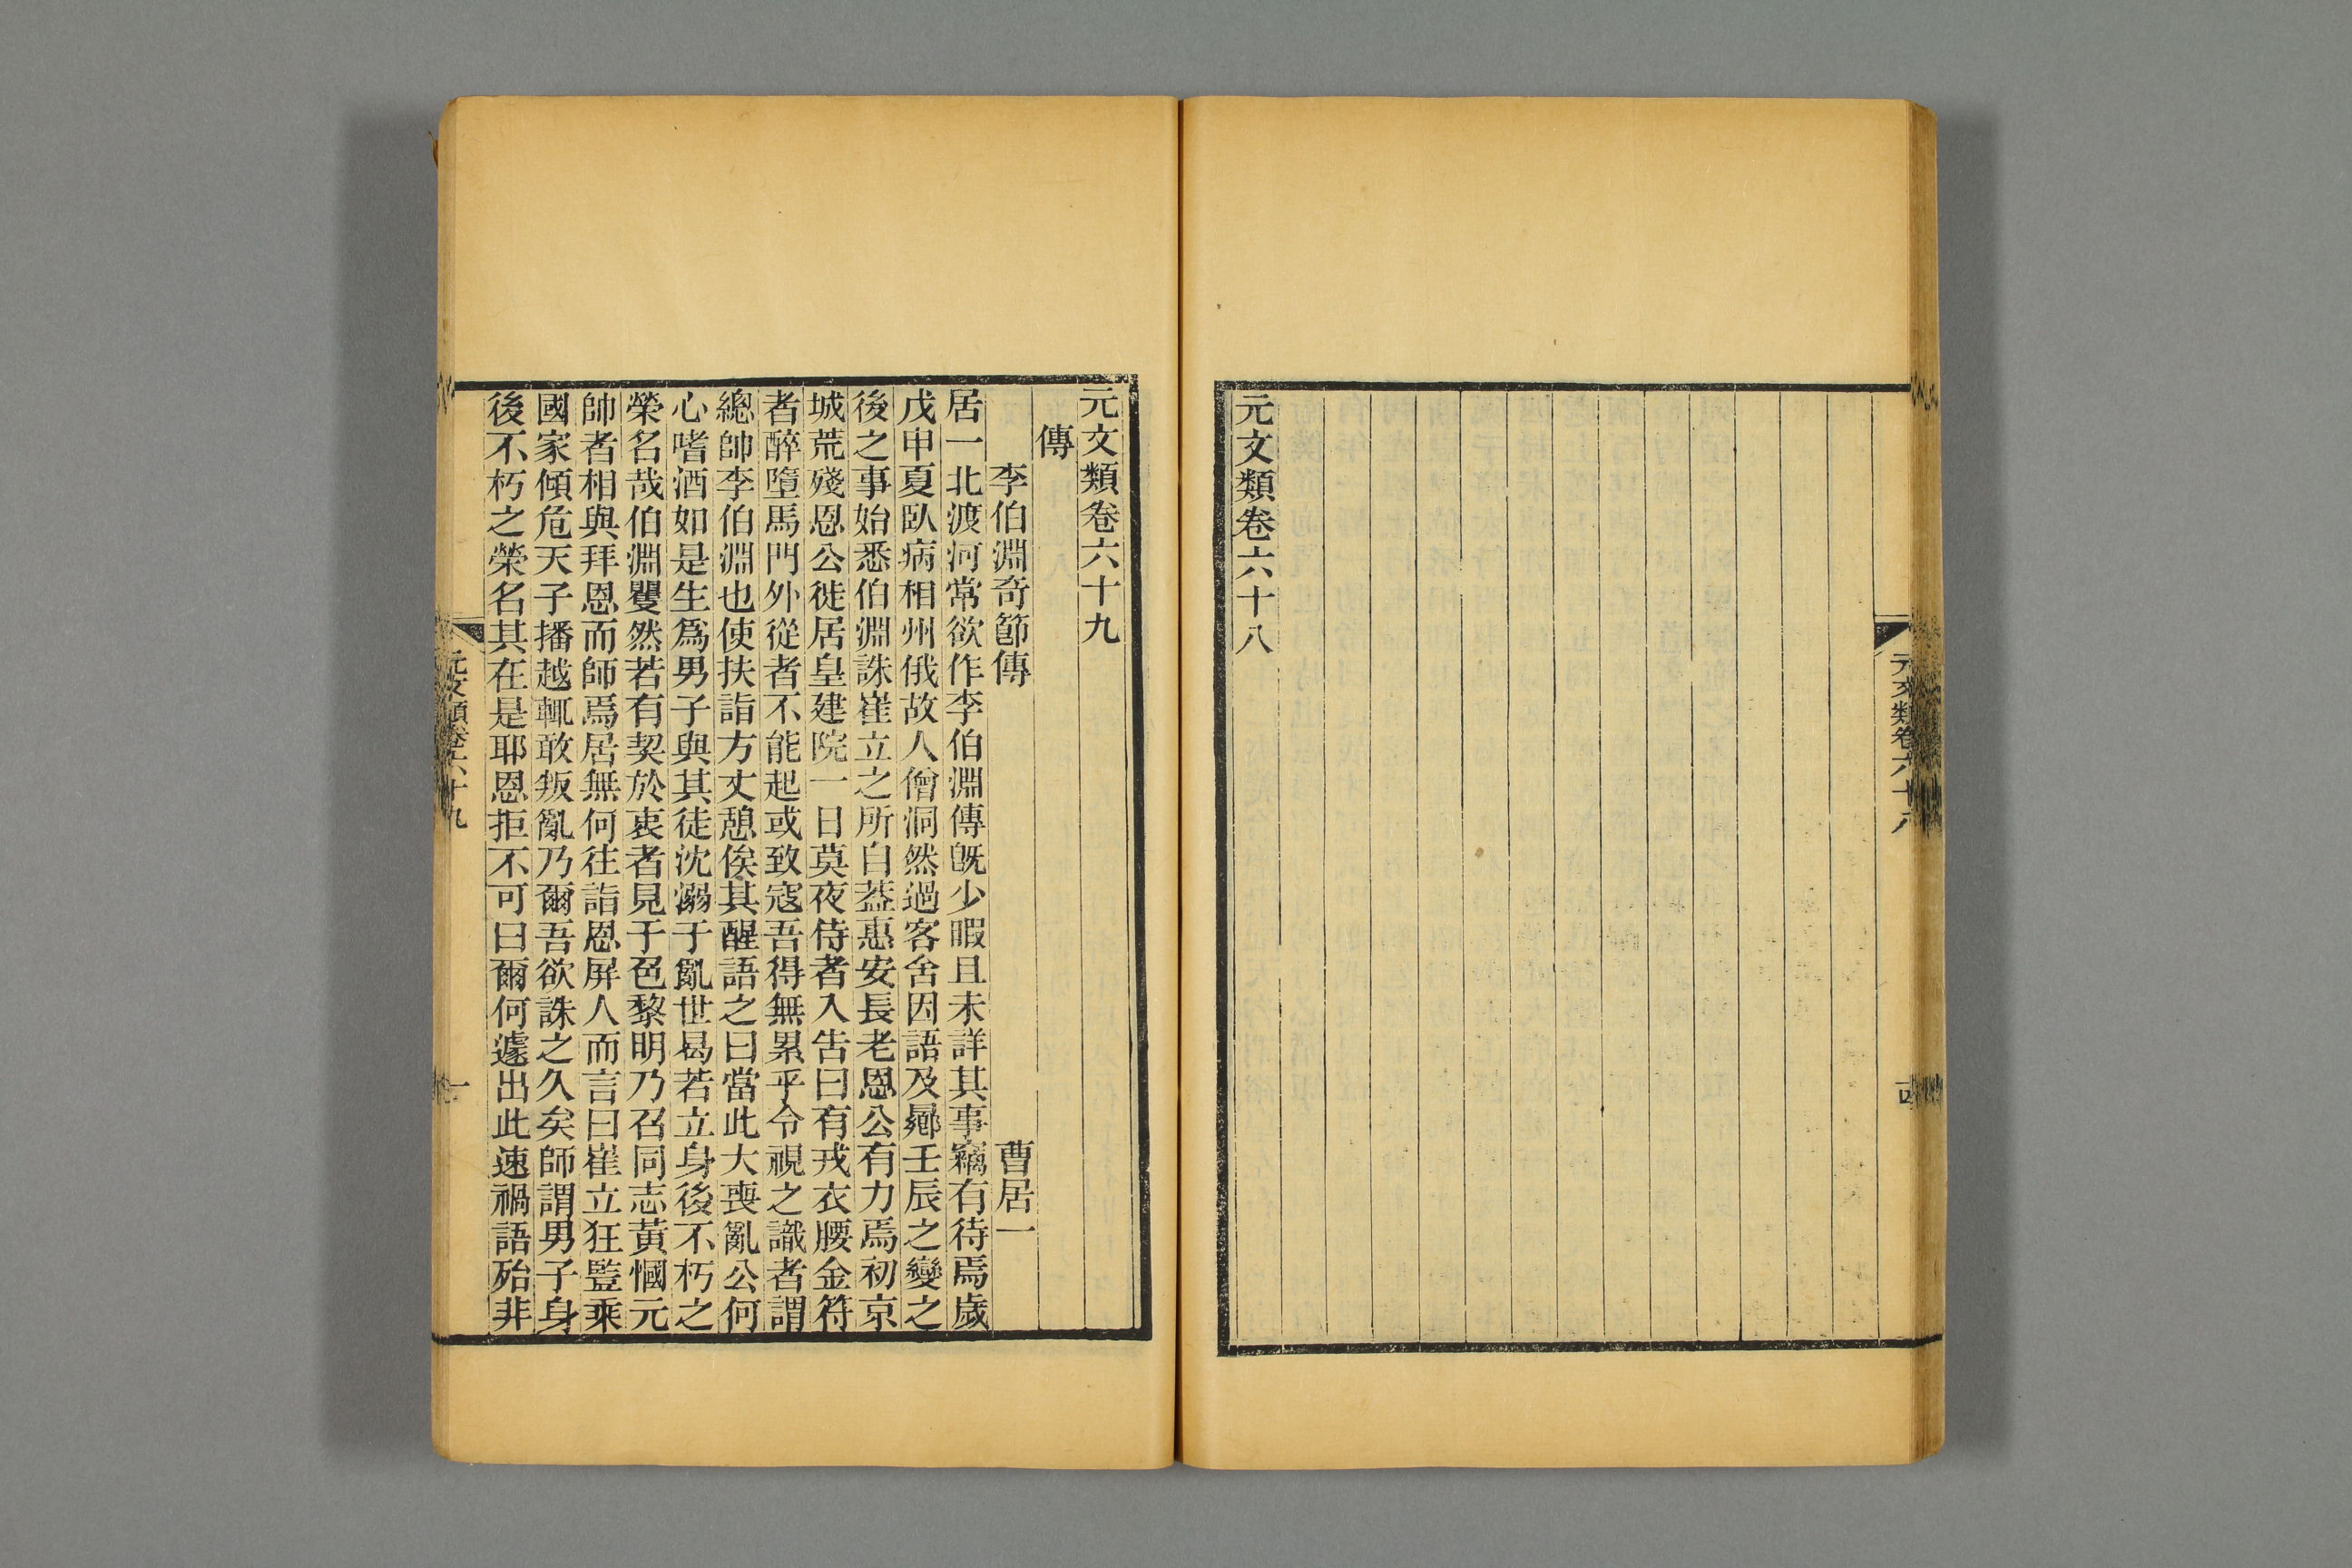 元文類卷六十八
十四
元文類卷六十八
元文類卷六十九
傳
李伯淵奇節傳
曹居一
居一北渡河常欲作李伯淵傳旣少暇且未詳其事竊有待焉歲
戊申夏臥病相州俄故人僧洞然過客舍因語及曏壬辰之變之
後之事始悉伯淵誅崔立之所自葢惠安長老恩公有力焉初京
城荒殘恩公徙居皇建院一日莫夜侍者入吿曰有戎衣腰金符
者醉墮馬門外從者不能起或致寇吾得無累乎令視之識者謂
總帥李伯淵也使扶詣方丈憩俟其醒語之曰當此大喪亂公何
心嗜酒如是生爲男子與其徒沈溺于亂世曷若立身後不朽之
榮名哉伯淵矍然若有契於衷者見于色黎明乃召同志黃慖元
帥者相與拜恩而師焉居無何往詣恩屏人而言曰崔立狂豎乘
國家傾危天子播越輒敢叛亂乃爾吾欲誅之久矣師謂男子身
後不朽之榮名其在是耶恩拒不可曰爾何遽出此速禍語殆非
元文類卷六十九
一